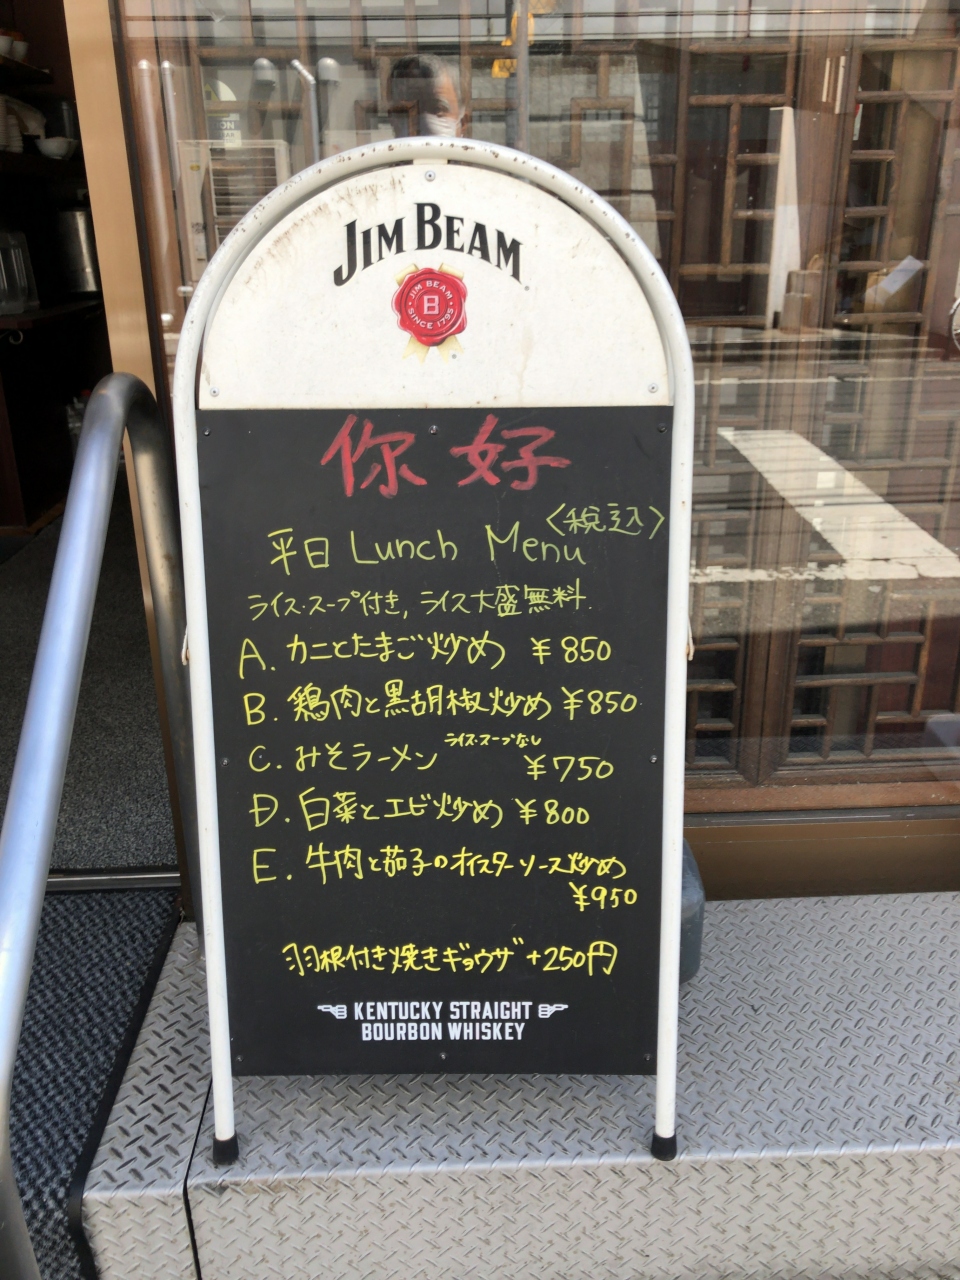 JIM BEAM
JIM BEAM
B
SINCE 1795
你好
<税込>
平日 Lunch Menu
ライス・スープ付き, ライス大盛無料.
A. カニとたまご炒め ¥850
B. 鶏肉と黒胡椒炒め ¥850
ライス・スープなし
C. みそラーメン ¥750
D. 白菜とエビ炒め ¥800
E. 牛肉と茄子のオイスターソース炒め
¥950
羽根付き焼きギョウザ +250円
KENTUCKY STRAIGHT
BOURBON WHISKEY